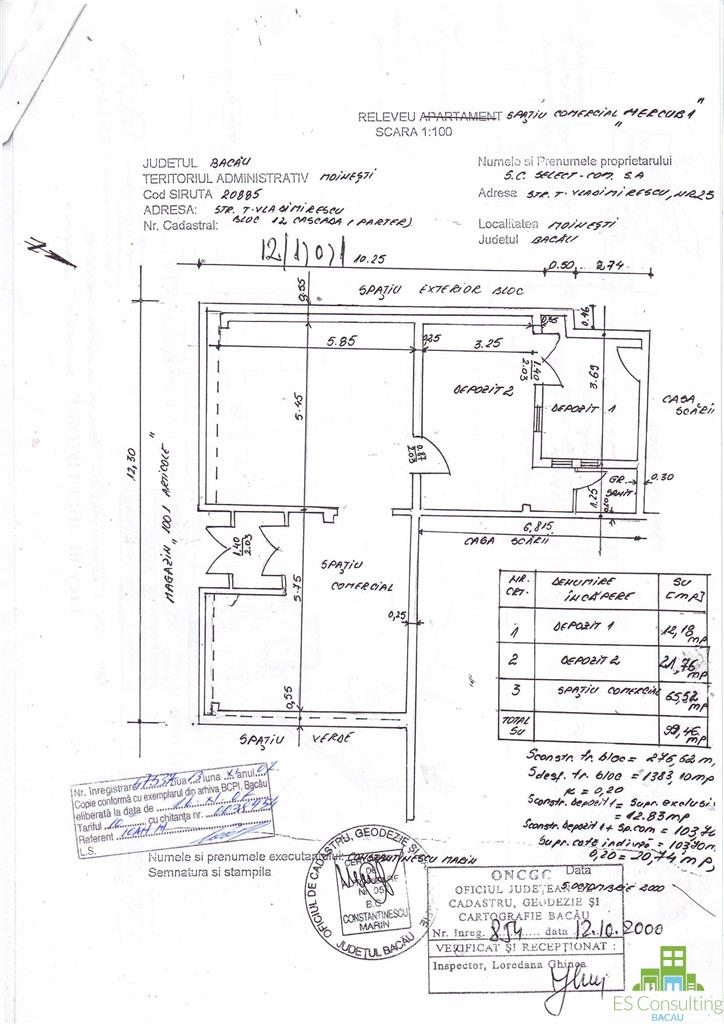 RELEVEU APARTAMENT SPAȚIU COMERCIAL „MERCUR 1"
SCARA 1:100
JUDETUL BACĂU
TERITORIUL ADMINISTRATIV MOINEȘTI
Cod SIRUTA 20885
ADRESA: STR. T. VLADIMIRESCU
BLOC 12 CASCADA (PARTER)
Nr. Cadastral:
12/1/0/1
Numele si Prenumele proprietarului
S.C. SELECT-COM. S.A
Adresa STR. T. VLADIMIRESCU, NR. 25
Localitatea MOINEȘTI
Judetul BACĂU
10.25
0.50
2.74
SPAȚIU EXTERIOR BLOC
0.55
0.46
5.85
0.25
3.25
5.45
1.40
2.03
3.69
DEPOZIT 2
DEPOZIT 1
CASA SCĂRII
12,30
MAGAZIN „1001 ARTICOLE"
0.87
2.03
GR. SANIT
1.25
0.30
6.815
CASA SCĂRII
1.40
2.03
SPAȚIU COMERCIAL
5.75
0,25
0,55
SPAȚIU VERDE
NR. CRT. DENUMIRE ÎNCĂPERE SU [MP]
1 DEPOZIT 1 12,18 mp
2 DEPOZIT 2 21,76 mp
3 SPAȚIU COMERCIAL 65,52 mp
TOTAL SU 99,46 mp
Sconstr. tr. bloc = 276,62 m
Sdesf. tr. bloc = 1383,10 mp
K = 0,20
Sconstr. depozit 1 = Supr. exclusi
= 12.83 mp
Sconstr. Depozit 1 + Sp. com = 103,70
Supr. cotă indiviză = 103,70 m
0,20 = 20,74 mp,
Nr. înregistrare Ziua 13 luna XI anul 07
Copie conformă cu exemplarul din arhiva BCPI, Bacău
eliberată la data de
Tariful 10 cu chitanța nr.
Referent IOAN M
L.S.
Numele si prenumele executantului: CONSTANTINESCU MARIN
Semnatura si stampila
Data
5 OCTOMBRIE 2000
OFICIUL DE CADASTRU, GEODEZIE ȘI
JUDEȚUL BACĂU
CONSTANTINESCU
MARIN
ONCGC
OFICIUL JUDEȚEAN
CADASTRU, GEODEZIE ȘI
CARTOGRAFIE BACĂU
Nr. înreg. 854 data 12.10.2000
VERIFICAT ȘI RECEPȚIONAT:
Inspector, Loredana Ghinea
ES Consulting
BACAU